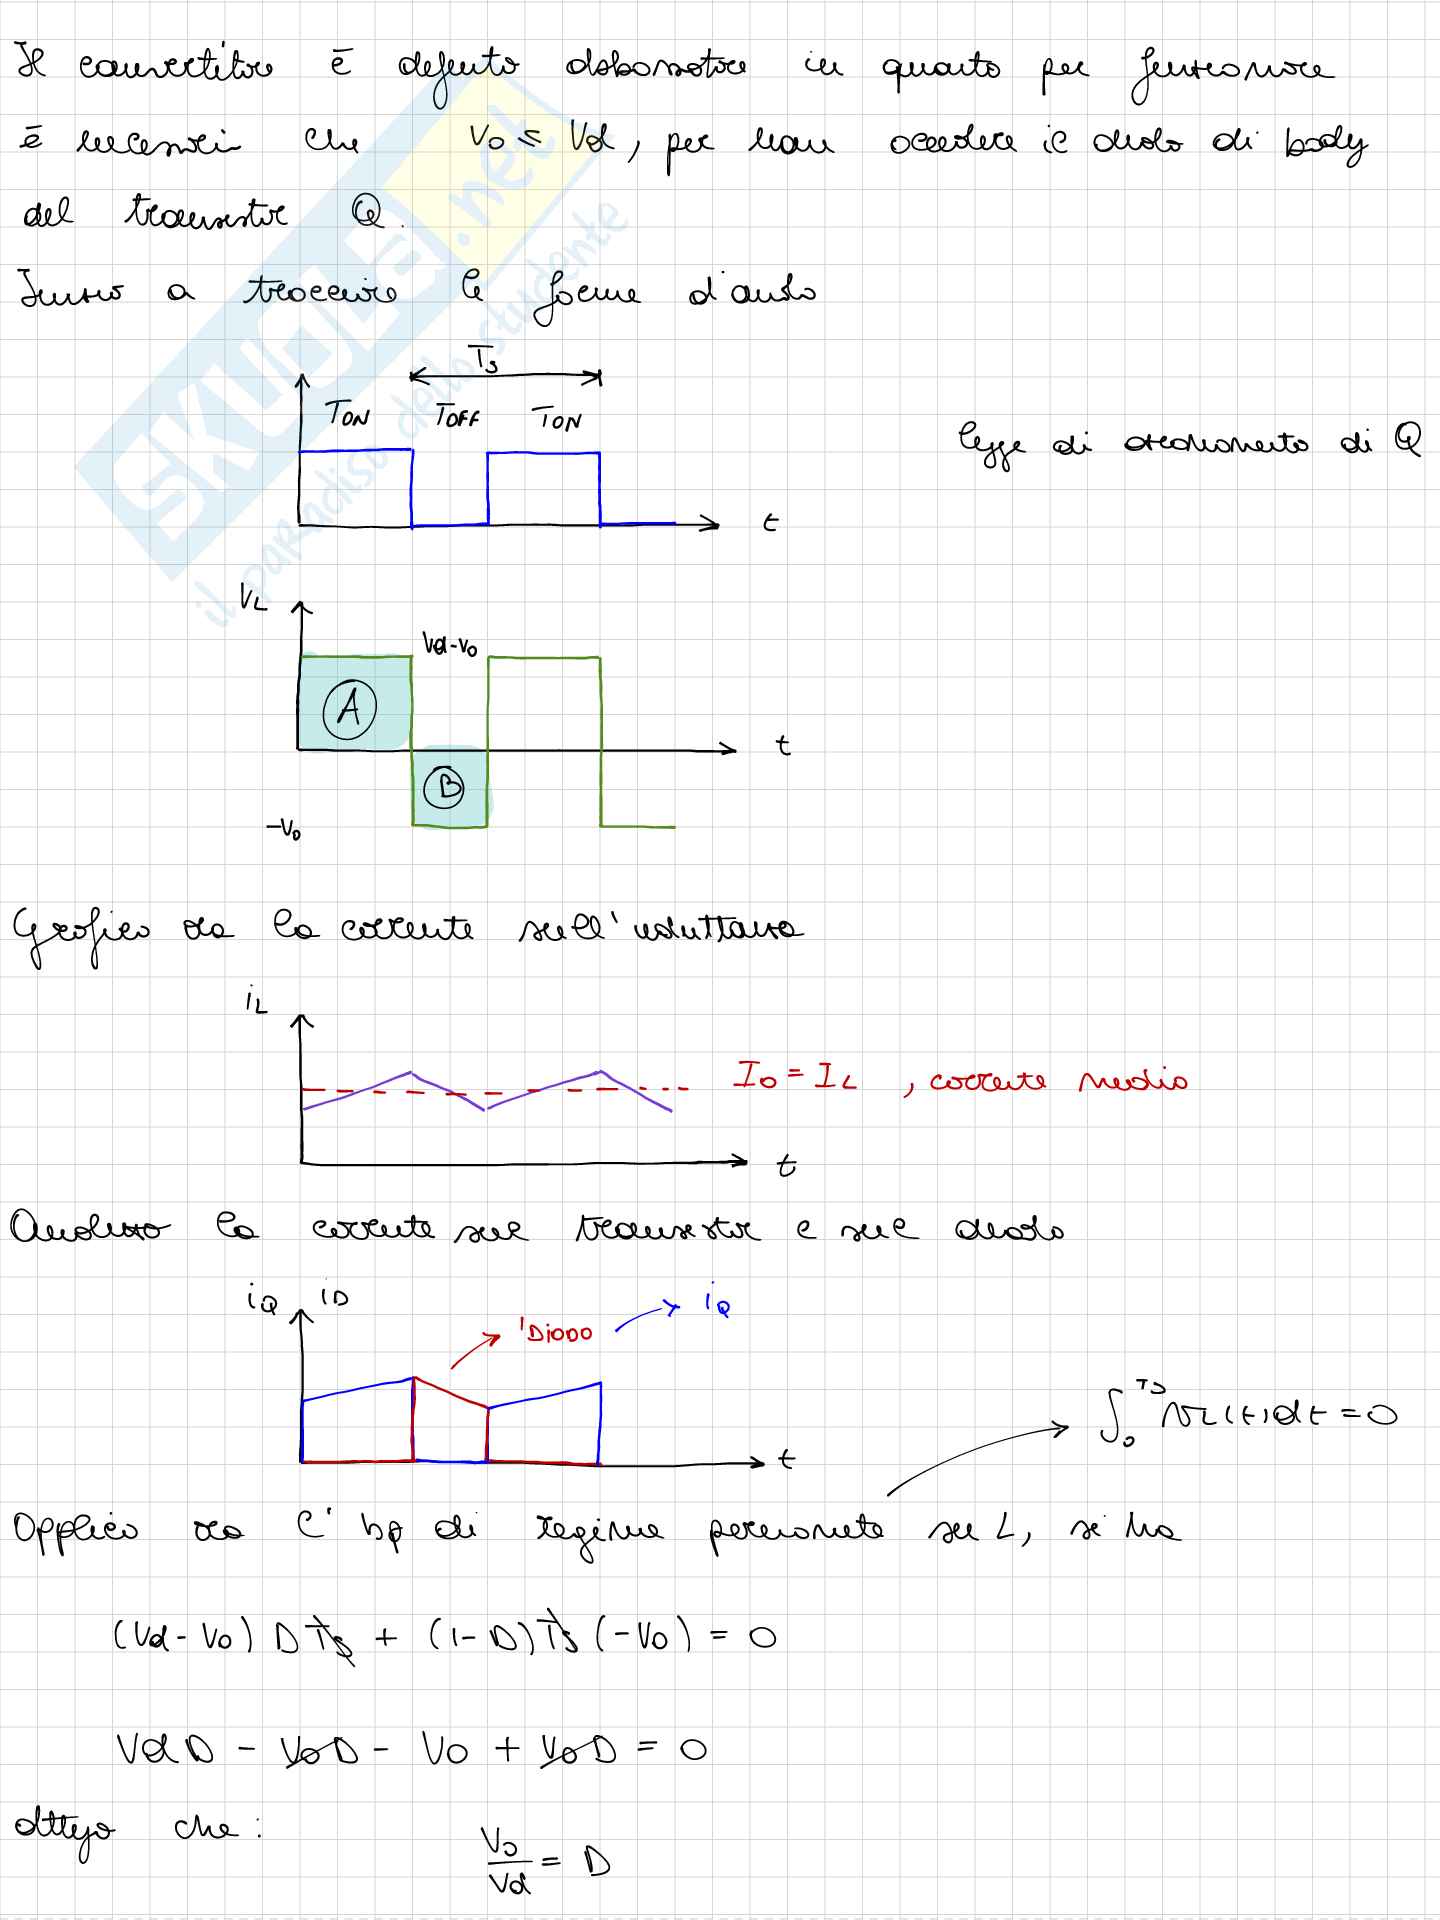 Il convertitore è definito abbassatore in quanto per funzionare
è necessario che Vo ≤ Vd, per non accendere il diodo di body
del transistor Q.
Inizio a tracciare le forme d'onda
Ts
TON TOFF TON
legge di azionamento di Q
t
VL
Vd-Vo
A
t
B
-Vo
Grafico ora la corrente sull'induttanza
iL
Io = IL , corrente media
t
Analizzo la corrente sul transistor e sul diodo
iQ iD
iDiodo
iQ
t
∫₀^Ts vL(t)dt = 0
Applico ora l' hp di regime permanente su L, si ha
(Vd - Vo) D Ts + (1-D) Ts (-Vo) = 0
VdD - VoD - Vo + VoD = 0
ottengo che:
Vo/Vd = D
SKUOLA.net
il paradiso dello studente